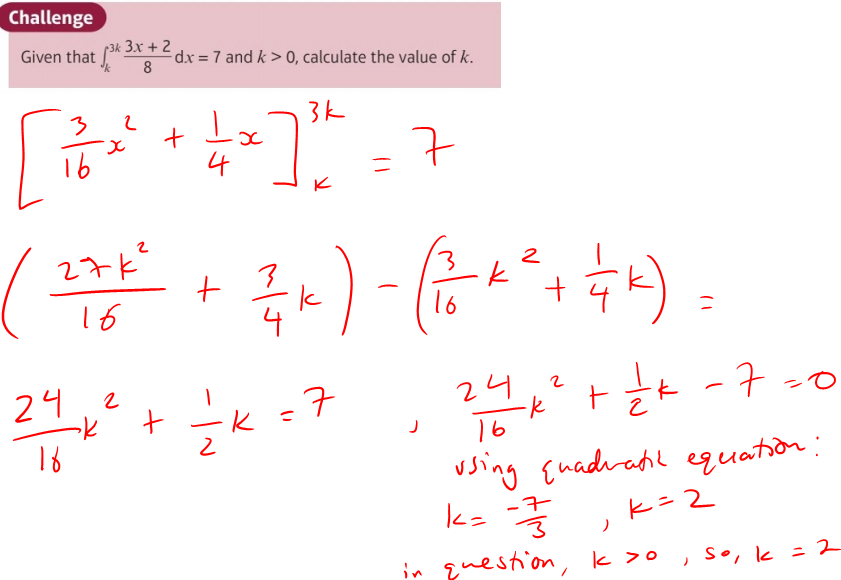 Challenge
Given that ∫_k^{3k} (3x + 2)/8 dx = 7 and k > 0, calculate the value of k.
[3/16 x² + 1/4 x]_k^{3k} = 7
(27k²/16 + 3/4 k) - (3/16 k² + 1/4 k) =
24/16 k² + 1/2 k = 7 , 24/16 k² + 1/2 k - 7 = 0
using quadratic equation:
k = -7/3 , k = 2
in question, k > 0 , so, k = 2